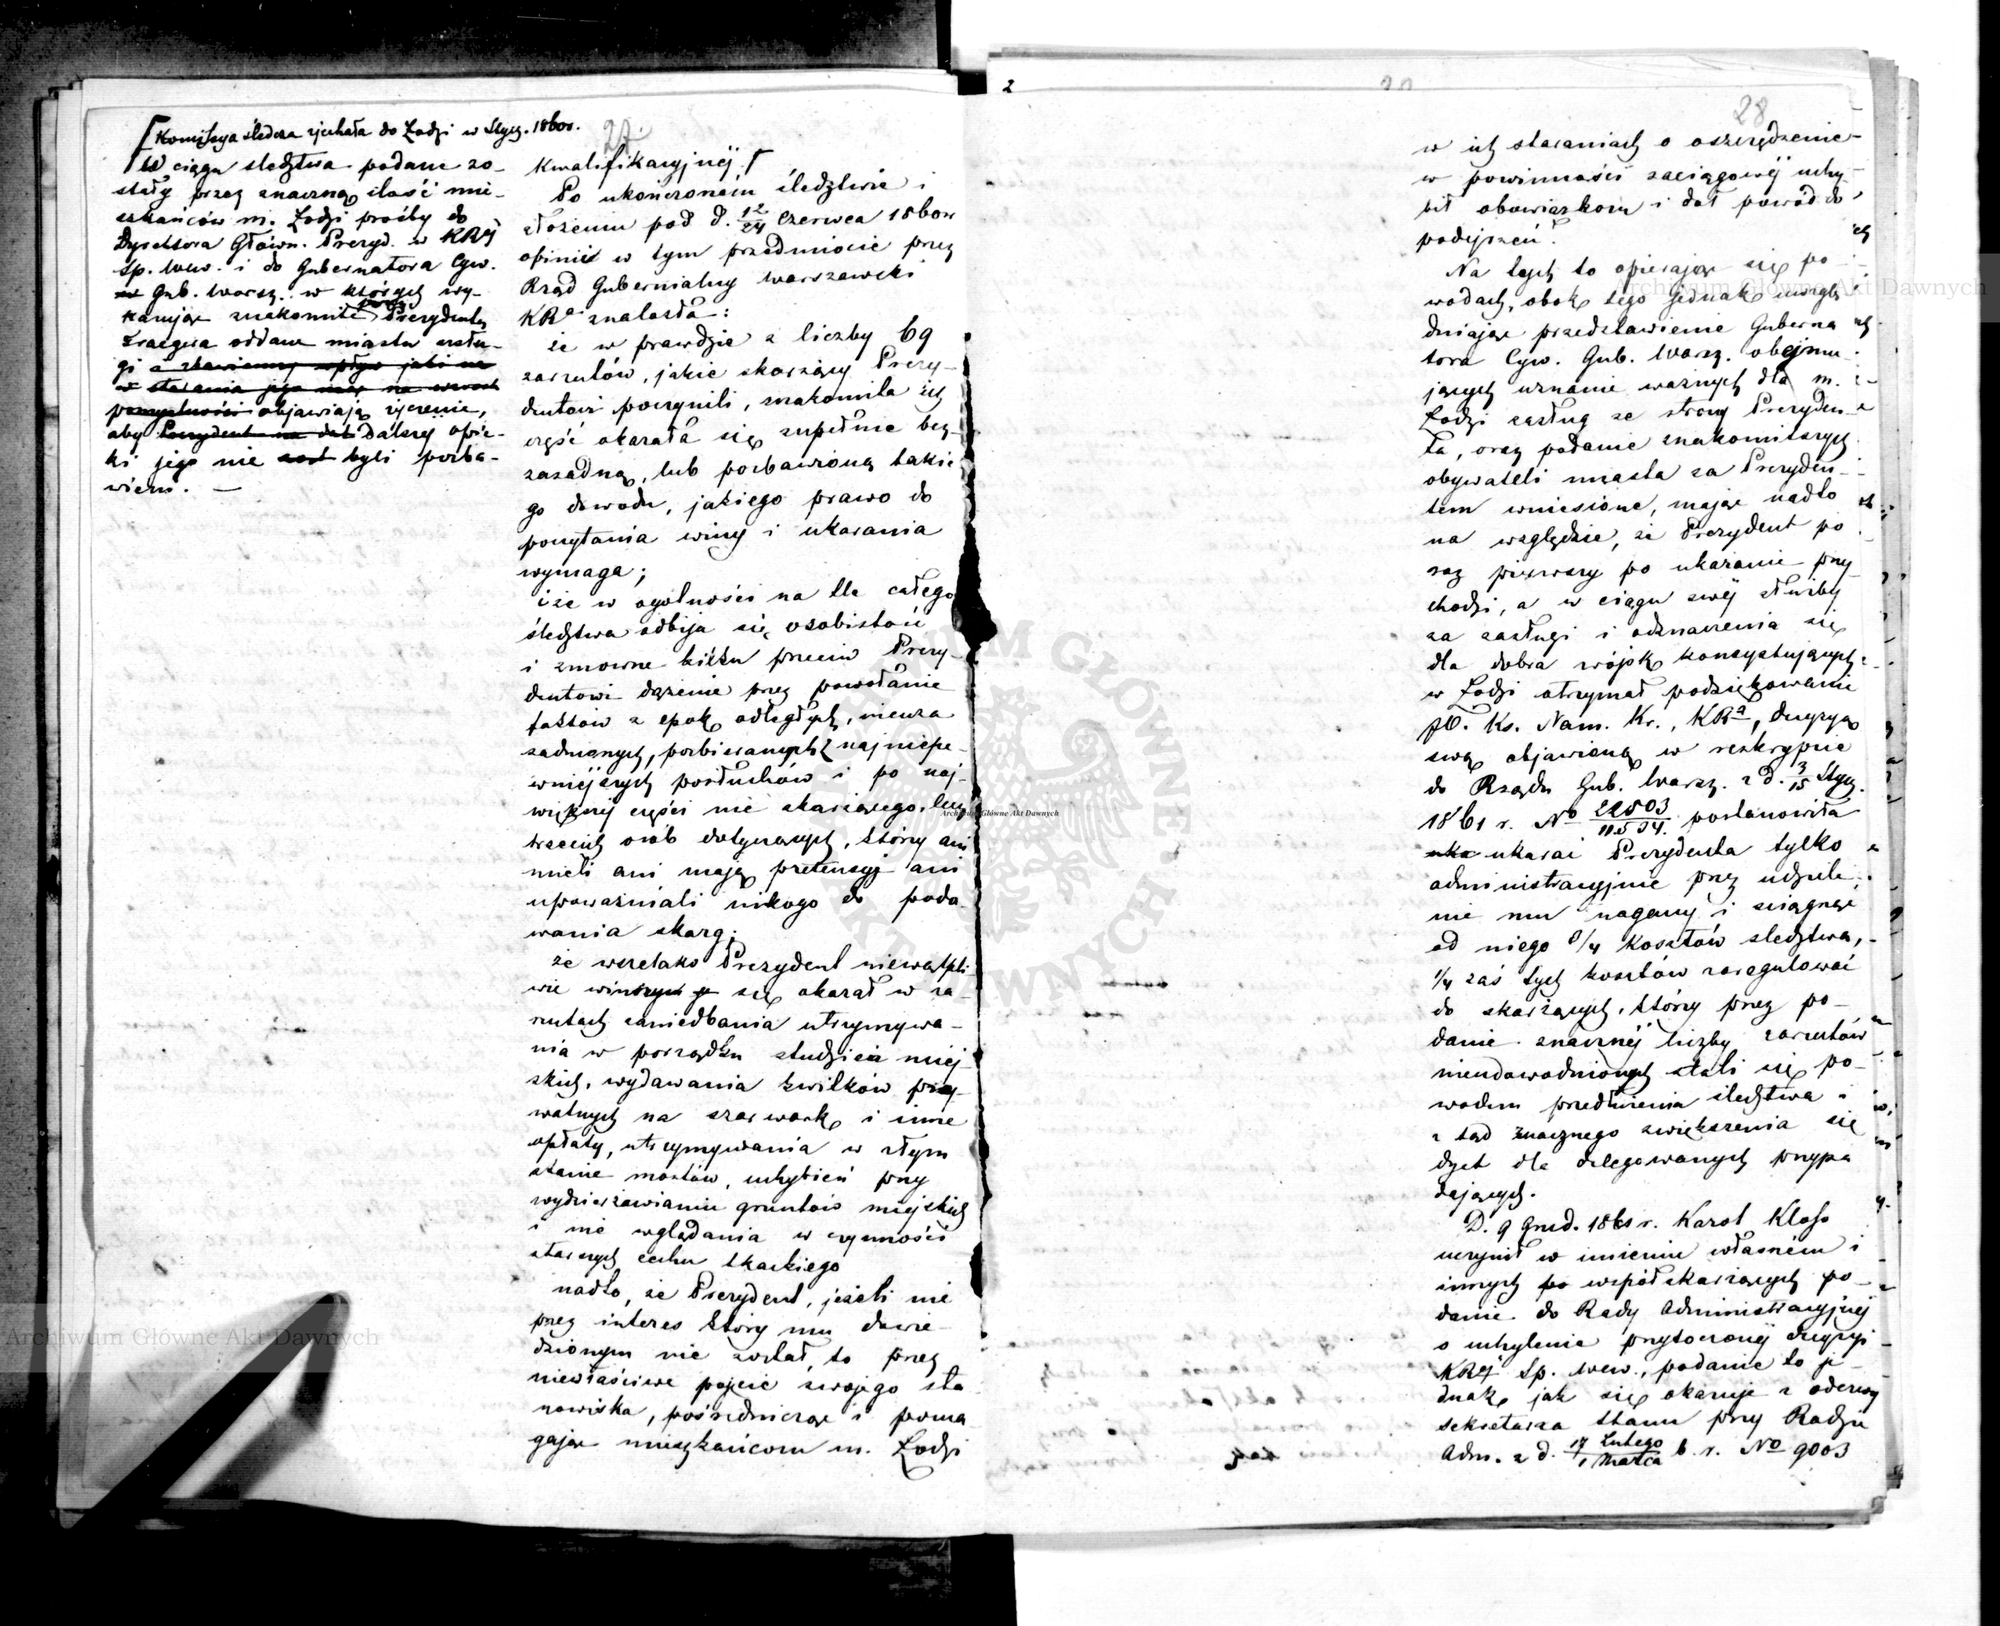 27.
[Komissya śledcza zjechała do Łodzi w Stycz. 1860r.
W ciągu śledztwa podane zo-
stały przez znaczną ilość mie-
szkańców m. Łodzi prośby do
Dyrektora Główn. Prezyd. w KRząd
Sp. Wew. i do Gubernatora Cyw.
Gub. Warsz. w których wy-
kazując znakomite Prezydenta
Traegera oddane miastu usłu-
gi a staraniem wpływ jaki na
w starania jego miały na wzrost
pomyślności objawiają życzenie,
aby Prezydent na dal dalszej opie-
ki jego nie byli pozba-
wieni. —
Kwalifikacyjnéj. [
Po ukończoném śledztwie i
złożeniu pod d. 12/24 Czerwca 1860r
opinii w tym przedmiocie przez
Rząd Gubernialny Warszawski
KRa znalazła:
że w prawdzie z liczby 69
zarzutów, jakie skarżący Prezy-
dentowi poczynili, znakomita ich
część okazała się zupełnie bez-
zasadną, lub pozbawioną takie
go dowodu, jakiego prawo do
poczytania winy i ukarania
wymaga;
i że w ogólności na tle całego
śledztwa odbija się osobistość
i zmowne kilku przeciw Prezy-
dentowi dążenie przez powołanie
faktów z epok odległych, nieuza
sadnionych, pozbieranych z najniepe-
wniejszych posłuchów i po naj-
większej części nie skarżącego, lecz
trzecich osób dotyczących, którzy ani
mieli ani mają pretensyj ani
upoważniali nikogo do poda-
wania skarg;
że wszelako Prezydent niewątpli-
wie winnym się okazał w za-
rzutach zaniedbania utrzymywa-
nia w porządku studzień miej-
skich, wydawania kwitków pry-
watnych na szarwark i inne
opłaty, utrzymywania w złym
stanie mostów, uchybień przy
wydzierżawianiu gruntów miejskich
i nie wglądania w czynności
starszych cechu tkackiego
nadto, że Prezydent, jeżeli nie
przez interes który mu dowie-
dzionym nie został, to przez
niewłaściwe pojęcie swojego sta
nowiska, pośrednicząc i poma
gając mieszkańcom m. Łodzi
2
28
w ich staraniach o oszczędzenie
w powinności zaciągowéj uchy-
bił obowiązkom i dał powód do
podejrzeń.
Na tych to opierając się po-
wodach, obok tego jednak uwzglę
dniając przedstawienie Guberna
tora Cyw. Gub. Warsz. obejmu-
jących uznanie ważnych dla m.
Łodzi zasług ze strony Prezyden-
ta, oraz podanie znakomitszych
obywateli miasta za Prezyden-
tem wniesione, mając nadto
na względzie, że Prezydent po
raz pierwszy po ukaranie przy
chodzi, a w ciągu swéj służby
za zasługi i odznaczenia się
dla dobra wojsk konsystujących
w Łodzi otrzymał podziękowanie
JO. Ks. Nam. Kr., KRa, decyzyą
swą objawioną w reskrypcie
do Rządu Gub. Warsz. z d. 3/15 Stycz.
1861 r. No 22503/11554. postanowiła
uka ukarać Prezydenta tylko
administracyjnie przez udziele-
nie mu nagany i ściągnąć
od niego 3/4 kosztów śledztwa,
1/4 zaś tych kosztów rozegulować
do skarżących, którzy przez po-
danie znacznéj liczby zarzutów
nieudowodnionych stali się po-
wodem przedłużenia śledztwa i
z tąd znacznego zwiększenia się
dyet dla delegowanych przypa
dających.
D. 9 Grud. 1861 r. Karol Kloss
uczynił w imieniu własném i
innych po współskarżących po-
danie do Rady Administracyjnéj
o uchylenie przytoczonéj decyzyi
KRząd Sp. Wew., podanie to je-
dnak, jak się okazuje z odezwy
Sekretarza Stanu przy Radzie
Adm. z d. 17 Lutego/1 Marca b. r. No 9003
Archiwum Główne Akt Dawnych
Archiwum Główne Akt Dawnych
Archiwum Główne Akt Dawnych
ARCHIWUM GŁÓWNE AKT DAWNYCH